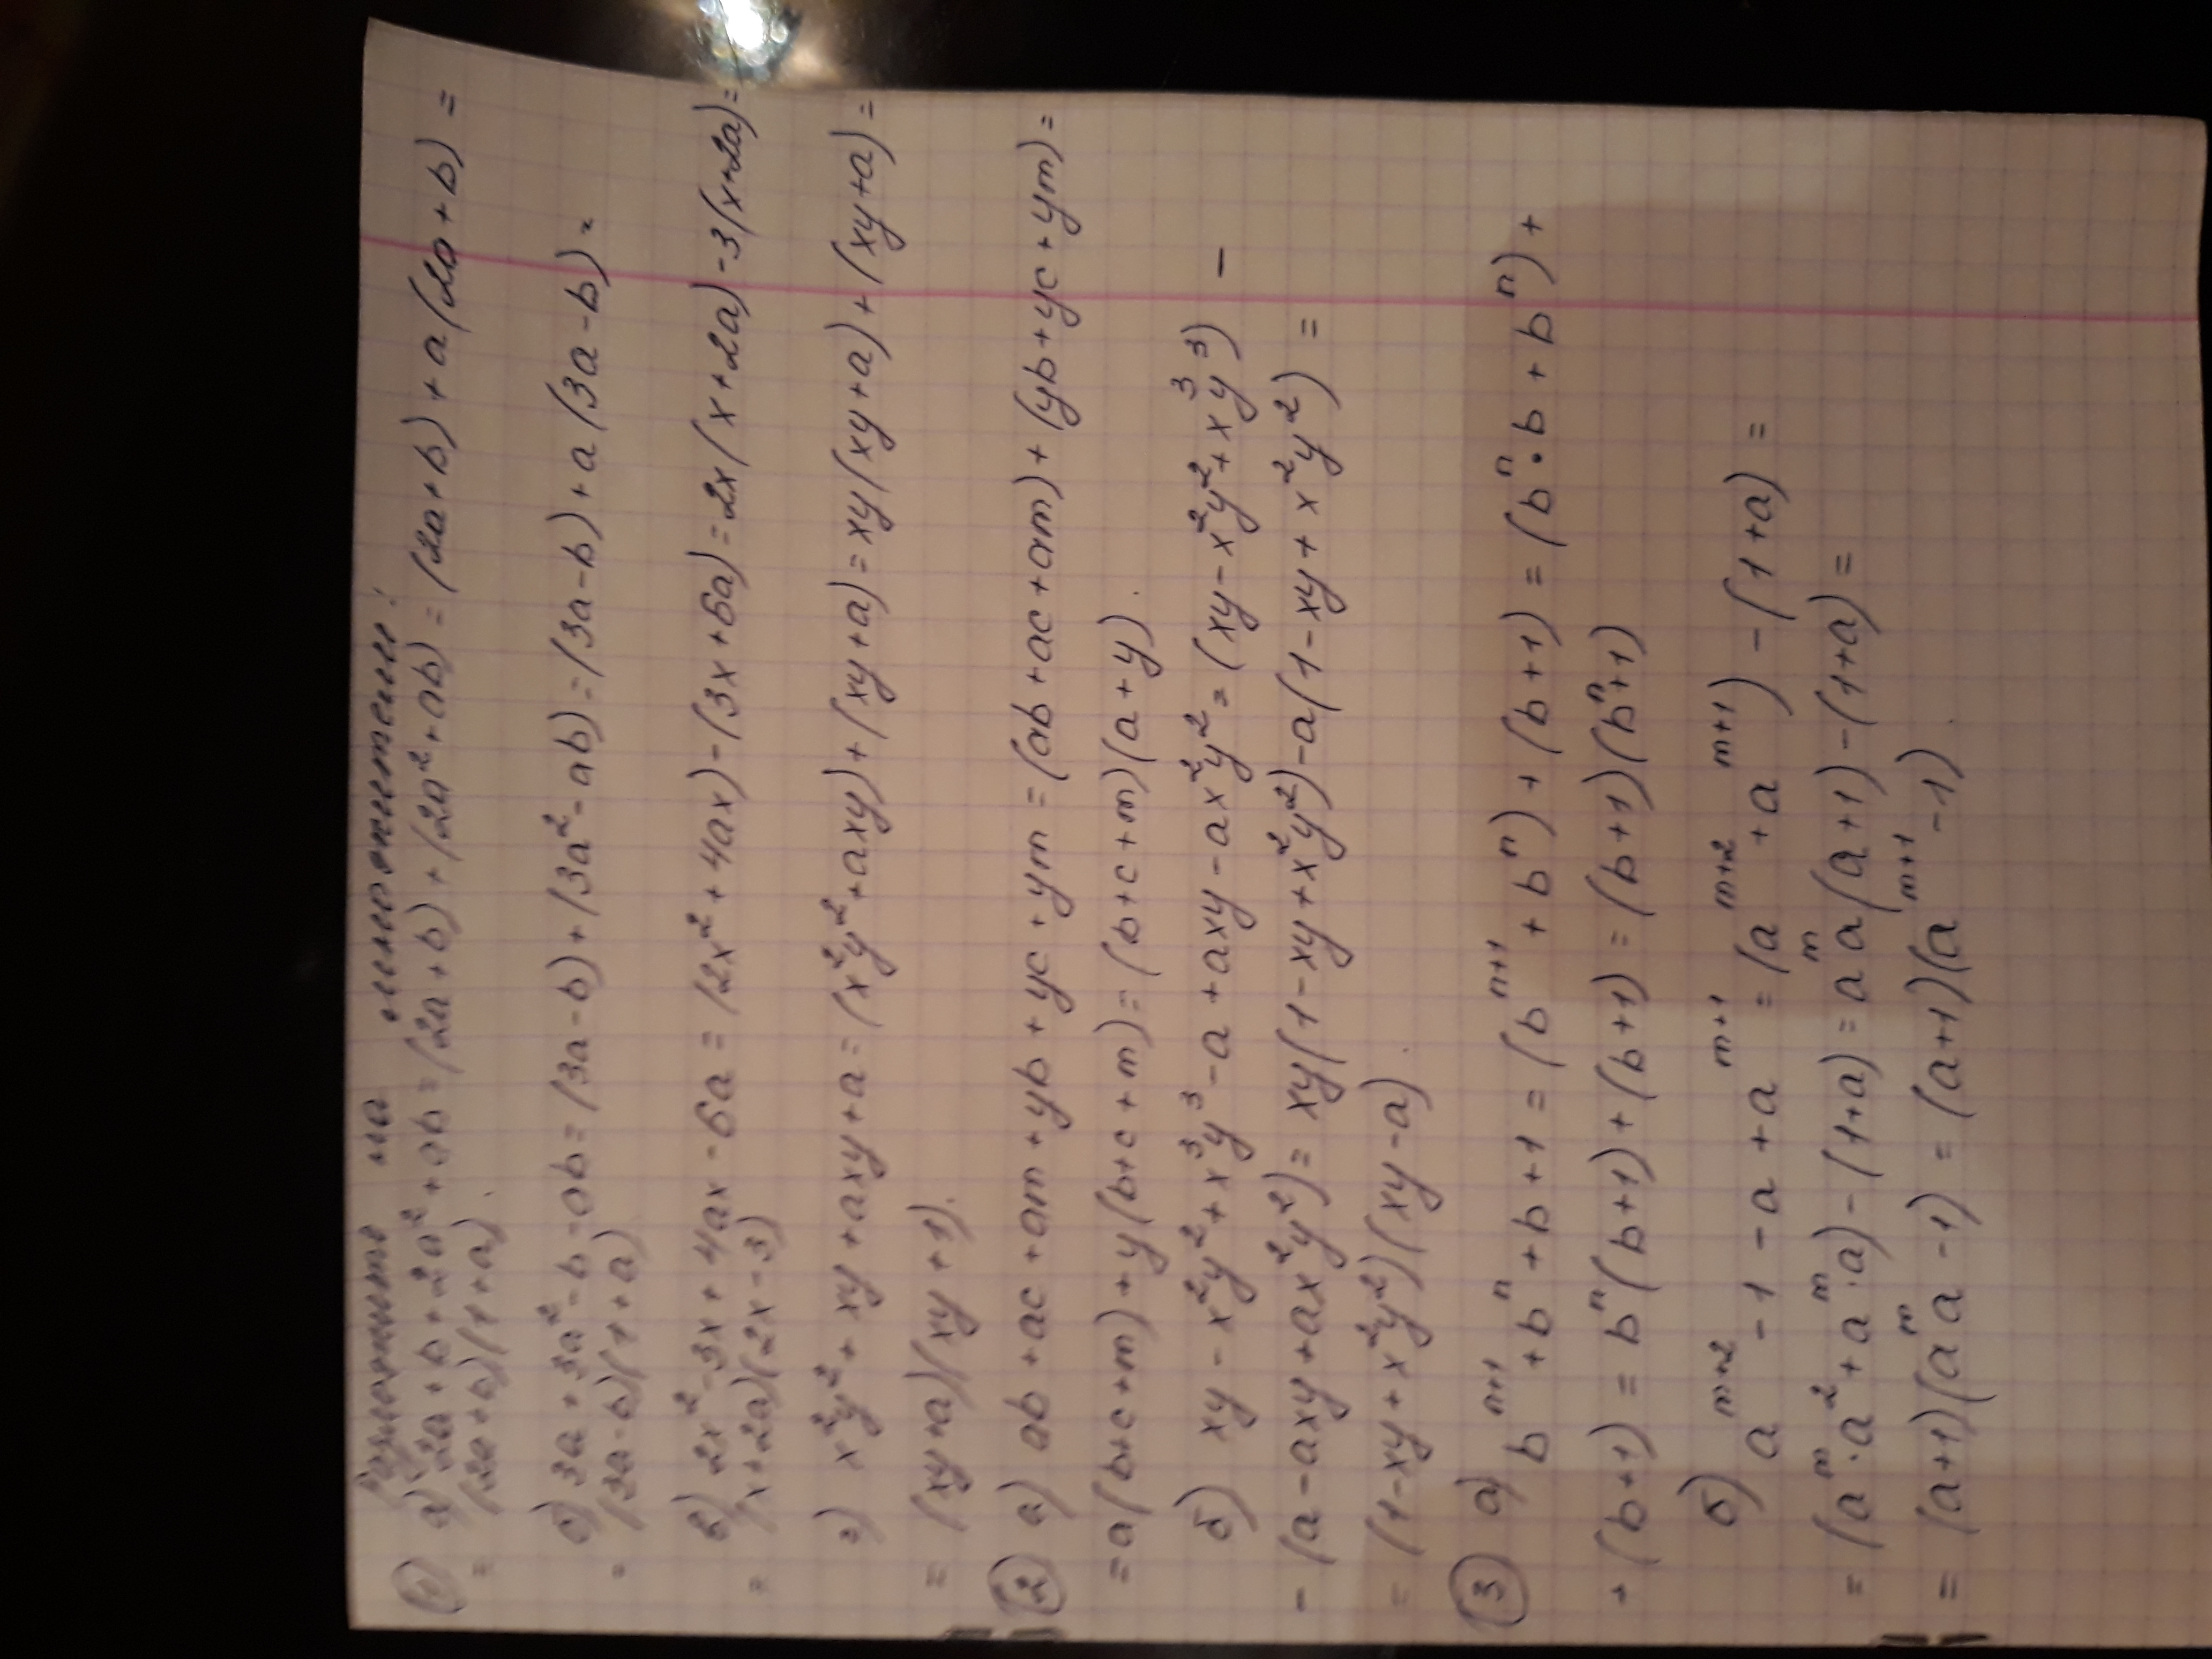 Разложить на множители:
① а) 2a + b + 2a² + ab = (2a + b) + (2a² + ab) = (2a + b) + a(2a + b) =
= (2a + b)(1 + a).
б) 3a + 3a² - b - ab = (3a - b) + (3a² - ab) = (3a - b) + a(3a - b) =
= (3a - b)(1 + a)
в) 2x² - 3x + 4ax - 6a = (2x² + 4ax) - (3x + 6a) = 2x(x + 2a) - 3(x + 2a) =
= (x + 2a)(2x - 3)
г) x²y² + xy + axy + a = (x²y² + axy) + (xy + a) = xy(xy + a) + (xy + a) =
= (xy + a)(xy + 1).
② а) ab + ac + am + yb + yc + ym = (ab + ac + am) + (yb + yc + ym) =
= a(b + c + m) + y(b + c + m) = (b + c + m)(a + y).
б) xy - x²y² + x³y³ - a + axy - ax²y² = (xy - x²y² + x³y³) -
- (a - axy + ax²y²) = xy(1 - xy + x²y²) - a(1 - xy + x²y²) =
= (1 - xy + x²y²)(xy - a).
③ а) bⁿ⁺¹ + bⁿ + b + 1 = (bⁿ⁺¹ + bⁿ) + (b + 1) = (bⁿ · b + bⁿ) +
+ (b + 1) = bⁿ(b + 1) + (b + 1) = (b + 1)(bⁿ + 1)
б) aᵐ⁺² - 1 - a + aᵐ⁺¹ = (aᵐ⁺² + aᵐ⁺¹) - (1 + a) =
= (aᵐ · a² + aᵐ · a) - (1 + a) = aᵐa(a + 1) - (1 + a) =
= (a + 1)(aᵐa - 1) = (a + 1)(aᵐ⁺¹ - 1).